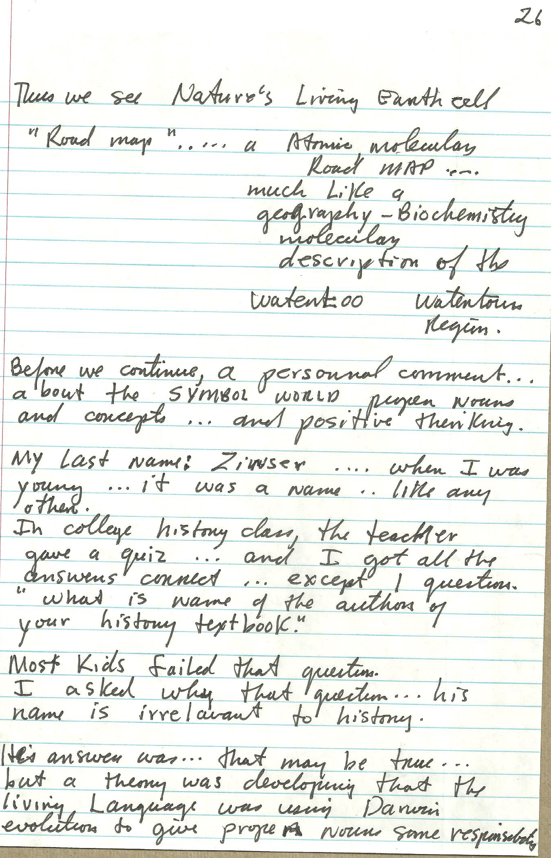 26
Thus we see Nature's Living Earth cell
"Road map"..... a Atomic, molecular
Road MAP ....
much Like a
geography - Biochemistry
molecular
description of the
Waterloo Watertown
Region.
Before we continue, a personnal comment...
about the SYMBOL WORLD proper nouns
and concepts ... and positive thinking.
My Last name: Zinser .... when I was
young ... it was a name .. like any
other.
In college history class, the teacher
gave a quiz ... and I got all the
answers correct ... except 1 question.
"what is name of the author of
your history textbook."
Most Kids failed that question.
I asked why that question... his
name is irrelavant to history.
His answer was... that may be true...
but a theory was developing that the
living Language was using Darwin
evolution to give proper nouns some